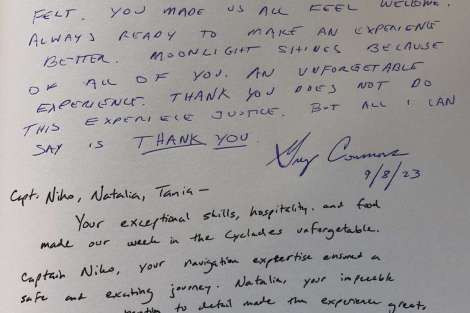 FELT. YOU MADE US ALL FEEL WELCOME.
ALWAYS READY TO MAKE AN EXPERIENCE
BETTER. MOONLIGHT SHINES BECAUSE
OF ALL OF YOU. AN UNFORGETABLE
EXPERIENCE. THANK YOU DOES NOT DO
THIS EXPERIELE JUSTICE. BUT ALL I CAN
SAY IS THANK YOU.
9/8/23
Capt. Niko, Natalia, Tania —
Your exceptional skills, hospitality. and food
made our week in the Cyclades unforgetable.
Captain Niko, your navigation expertise ensured a
safe and exciting journey. Natalia, your impecable
to detail made the experience great,